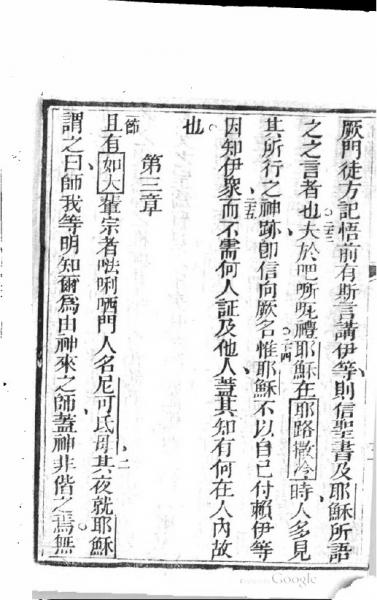 厥門徒方記悟前有斯言講伊等則信聖書及耶穌所語
之之言者也二三夫於吧禮耶穌在耶路撒冷時人多見
其所行之神跡即信向厥名二四惟耶穌不以自己付賴伊等
因知伊衆二五而不需何人証及他人蓋其知有何在人內故
也
第三章
節
且有如大輩宗者唎哂門人名尼可氐母二其夜就耶穌
謂之曰師我等明知爾為由神來之師蓋神非偕之焉無
Google